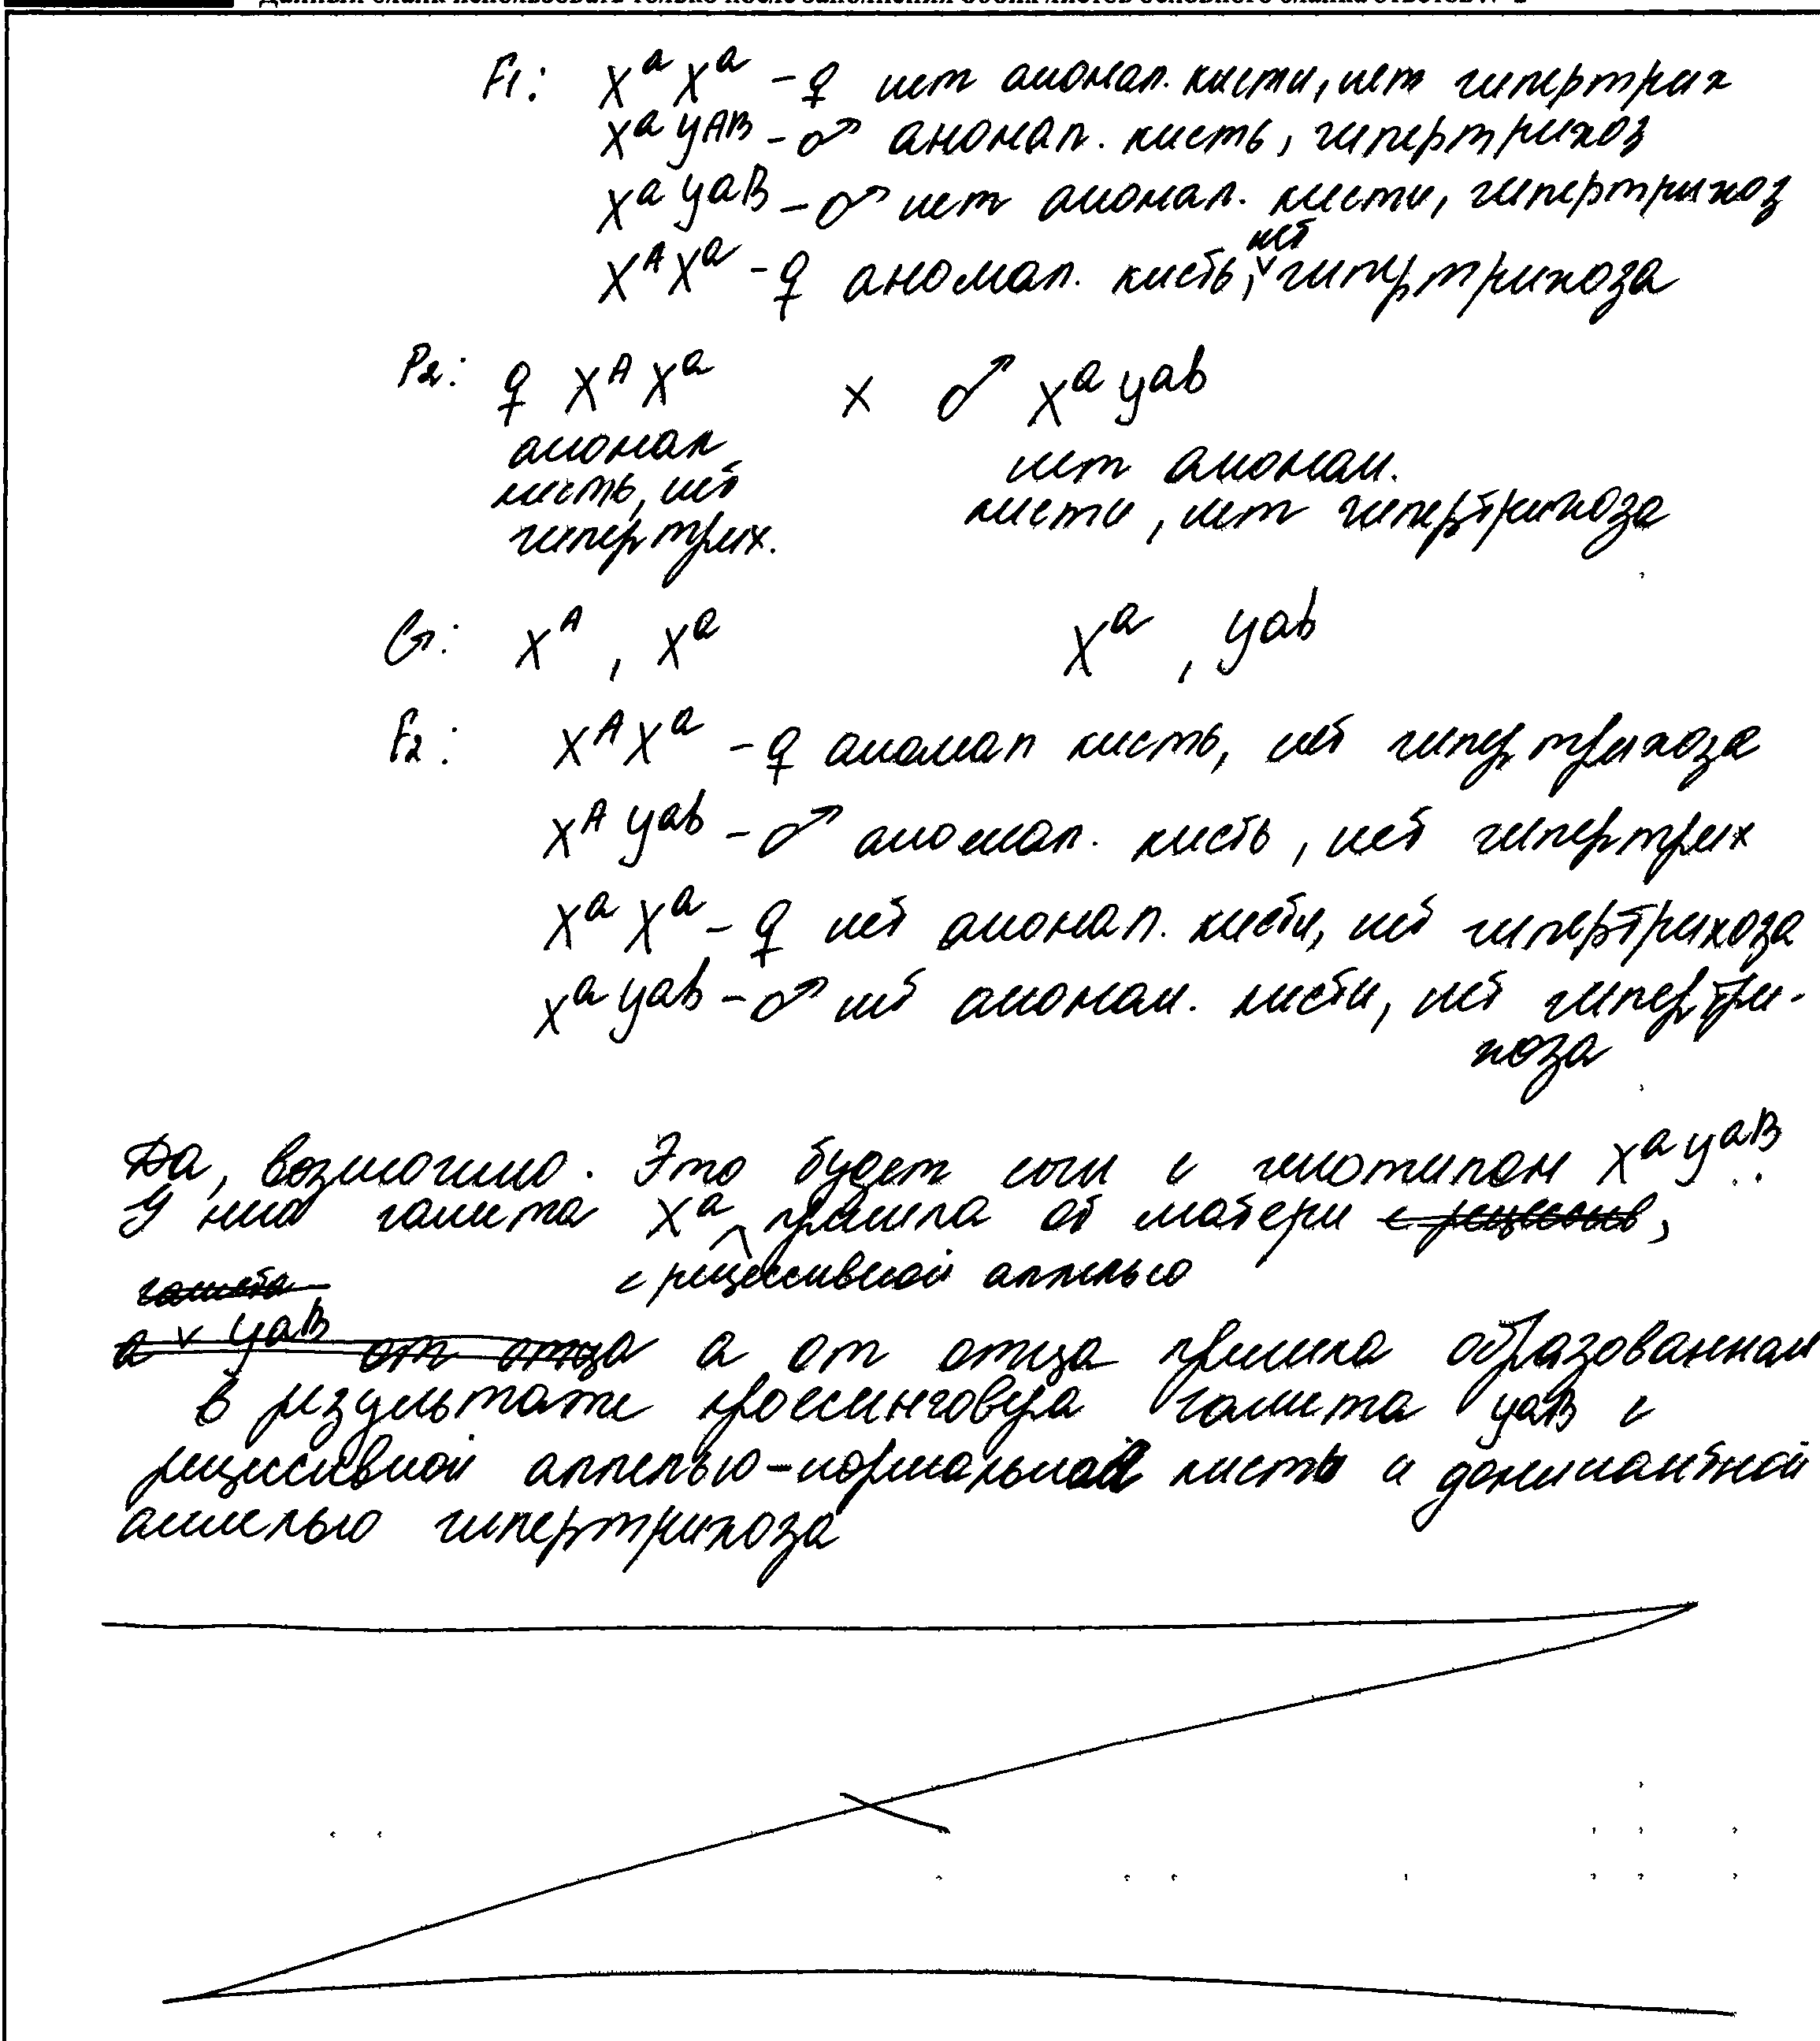 Данный бланк использовать только после заполнения обеих листов основного бланка ответов № 2
F1: XᵃXᵃ - ♀ нет аномал. кисти, нет гипертрих
XᵃYᴬᴮ - ♂ аномал. кисть, гипертрихоз
XᵃYᵃᴮ - ♂ нет аномал. кисти, гипертрихоз
XᴬXᵃ - ♀ аномал. кисть, нет гипертрихоза
P2: ♀ XᴬXᵃ x ♂ XᵃYᵃᵇ
аномал нет аномал.
кисть, нет кисти, нет гипертрихоза
гипертрих.
G: Xᴬ, Xᵃ Xᵃ, Yᵃᵇ
F2: XᴬXᵃ - ♀ аномал кисть, нет гипертрихоза
XᴬYᵃᵇ - ♂ аномал. кисть, нет гипертрих
XᵃXᵃ - ♀ нет аномал. кисти, нет гипертрихоза
XᵃYᵃᵇ - ♂ нет аномал. кисти, нет гипертри-
хоза
Да, возможно. Это будет сын с генотипом XᵃYᵃᴮ.
У него гамета Xᵃ пришла от матери с рецессив,
гамета с рецессивной аллелью
а Yᵃᴮ от отца а от отца пришла образованная
в результате кроссинговера гамета Yᵃᴮ с
рецессивной аллелью - нормальной кисть и доминантной
аллелью гипертрихоза